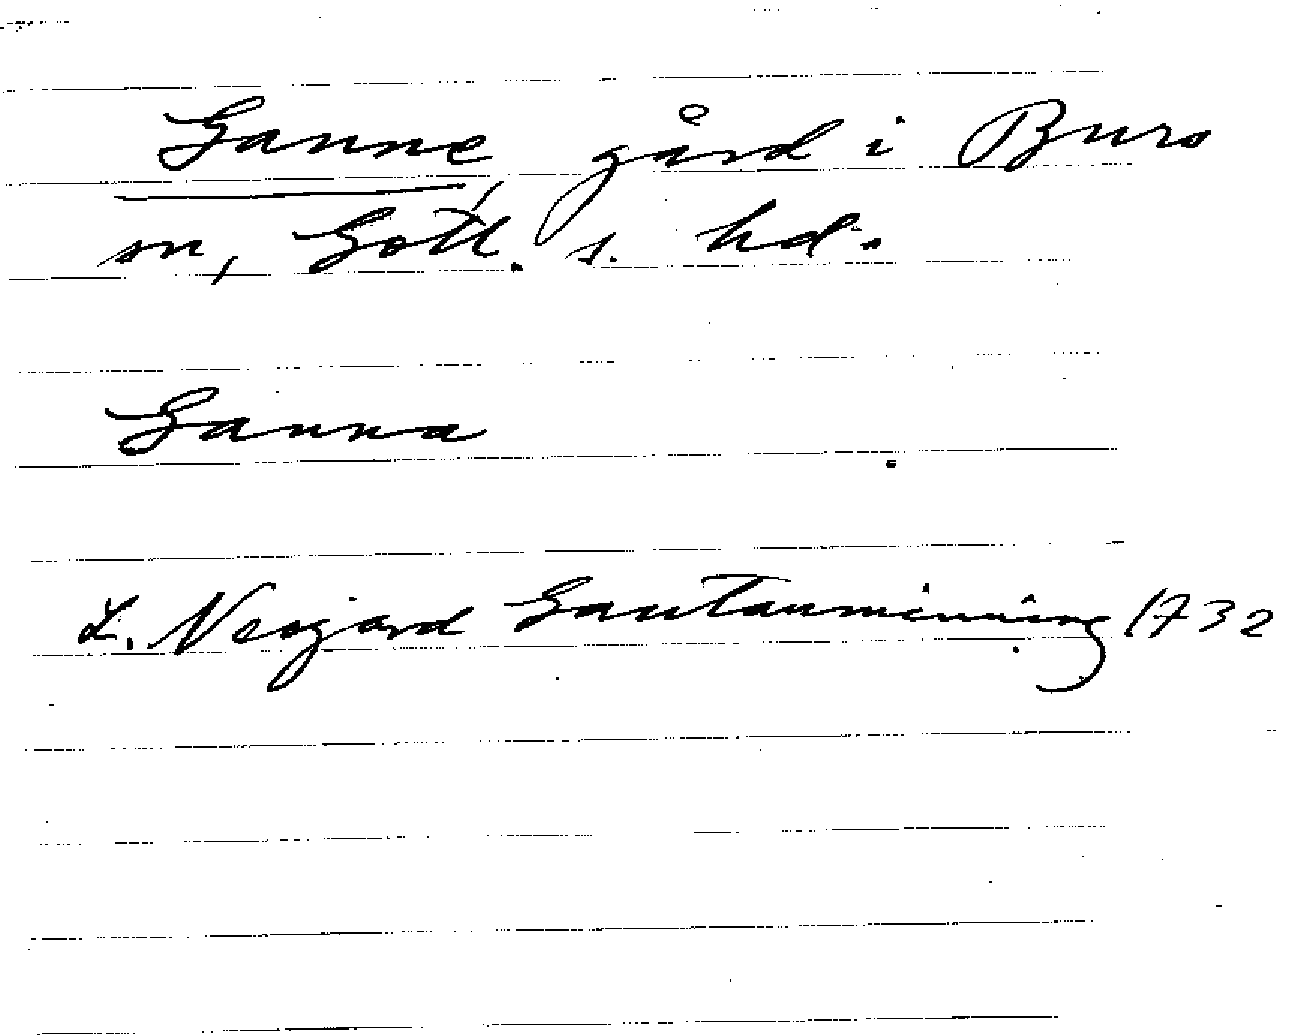 Ganne, gård i Burs
sn, Gotl. s. hd.
Ganna
L. Neogard Gautauminning 1732